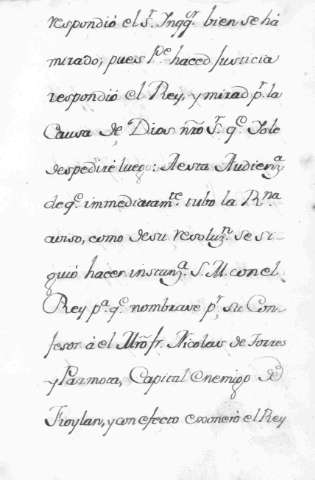 respondió el S.r Inqq.r bien se há
mirado, pues P.e haced Justicia
respondió el Rey, y mirad p.r la
Causa de Dios nro S.r q.e Yo le
despediré luego: A esta Audienz.a
de q.e immediatam.te tubo la R.na
aviso, como de su resoluz.n se si-
guió hacer instanz.a S. M. con el
Rey p.a q.e nombrase p.r su Con-
fesor á el Mro fr. Nicolas de Torres
y Parmota, Capital enemigo de
Froylan, y con efecto exoneró el Rey